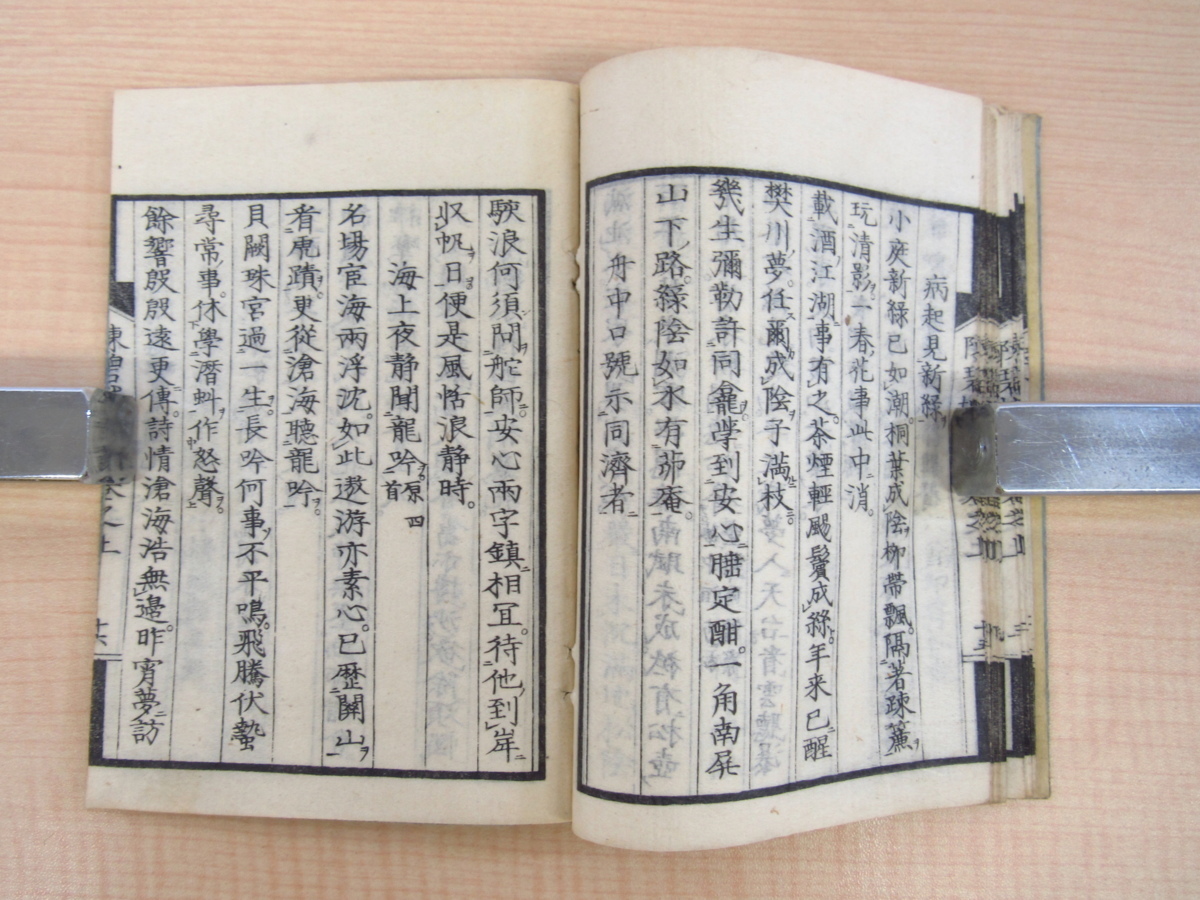 病起見新綠
小庭新綠已如潮桐葉成陰柳帶飄隔著疎簾
玩清影一春花事此中消
載酒江湖事有之茶煙輕颺鬢成絲年来已醒
樊川夢任爾成陰子滿枝
幾生彌勒許同龕學到安心睡定酣一角南屏
山下路綠陰如水有茆庵
舟中口號示同濟者
駛浪何須問舵師安心兩字鎮相宜待他到岸
収帆日便是風恬浪靜時
海上夜靜聞龍吟原四首
名場宦海兩浮沈如此遨游亦素心已歷關山
看虎蹟更從滄海聽龍吟
貝闕珠宮過一生長吟何事不平鳴飛騰伏蟄
尋常事休學潛蚪作怒聲
餘響殷殷遠更傳詩情滄海浩無邊昨宵夢訪
十六